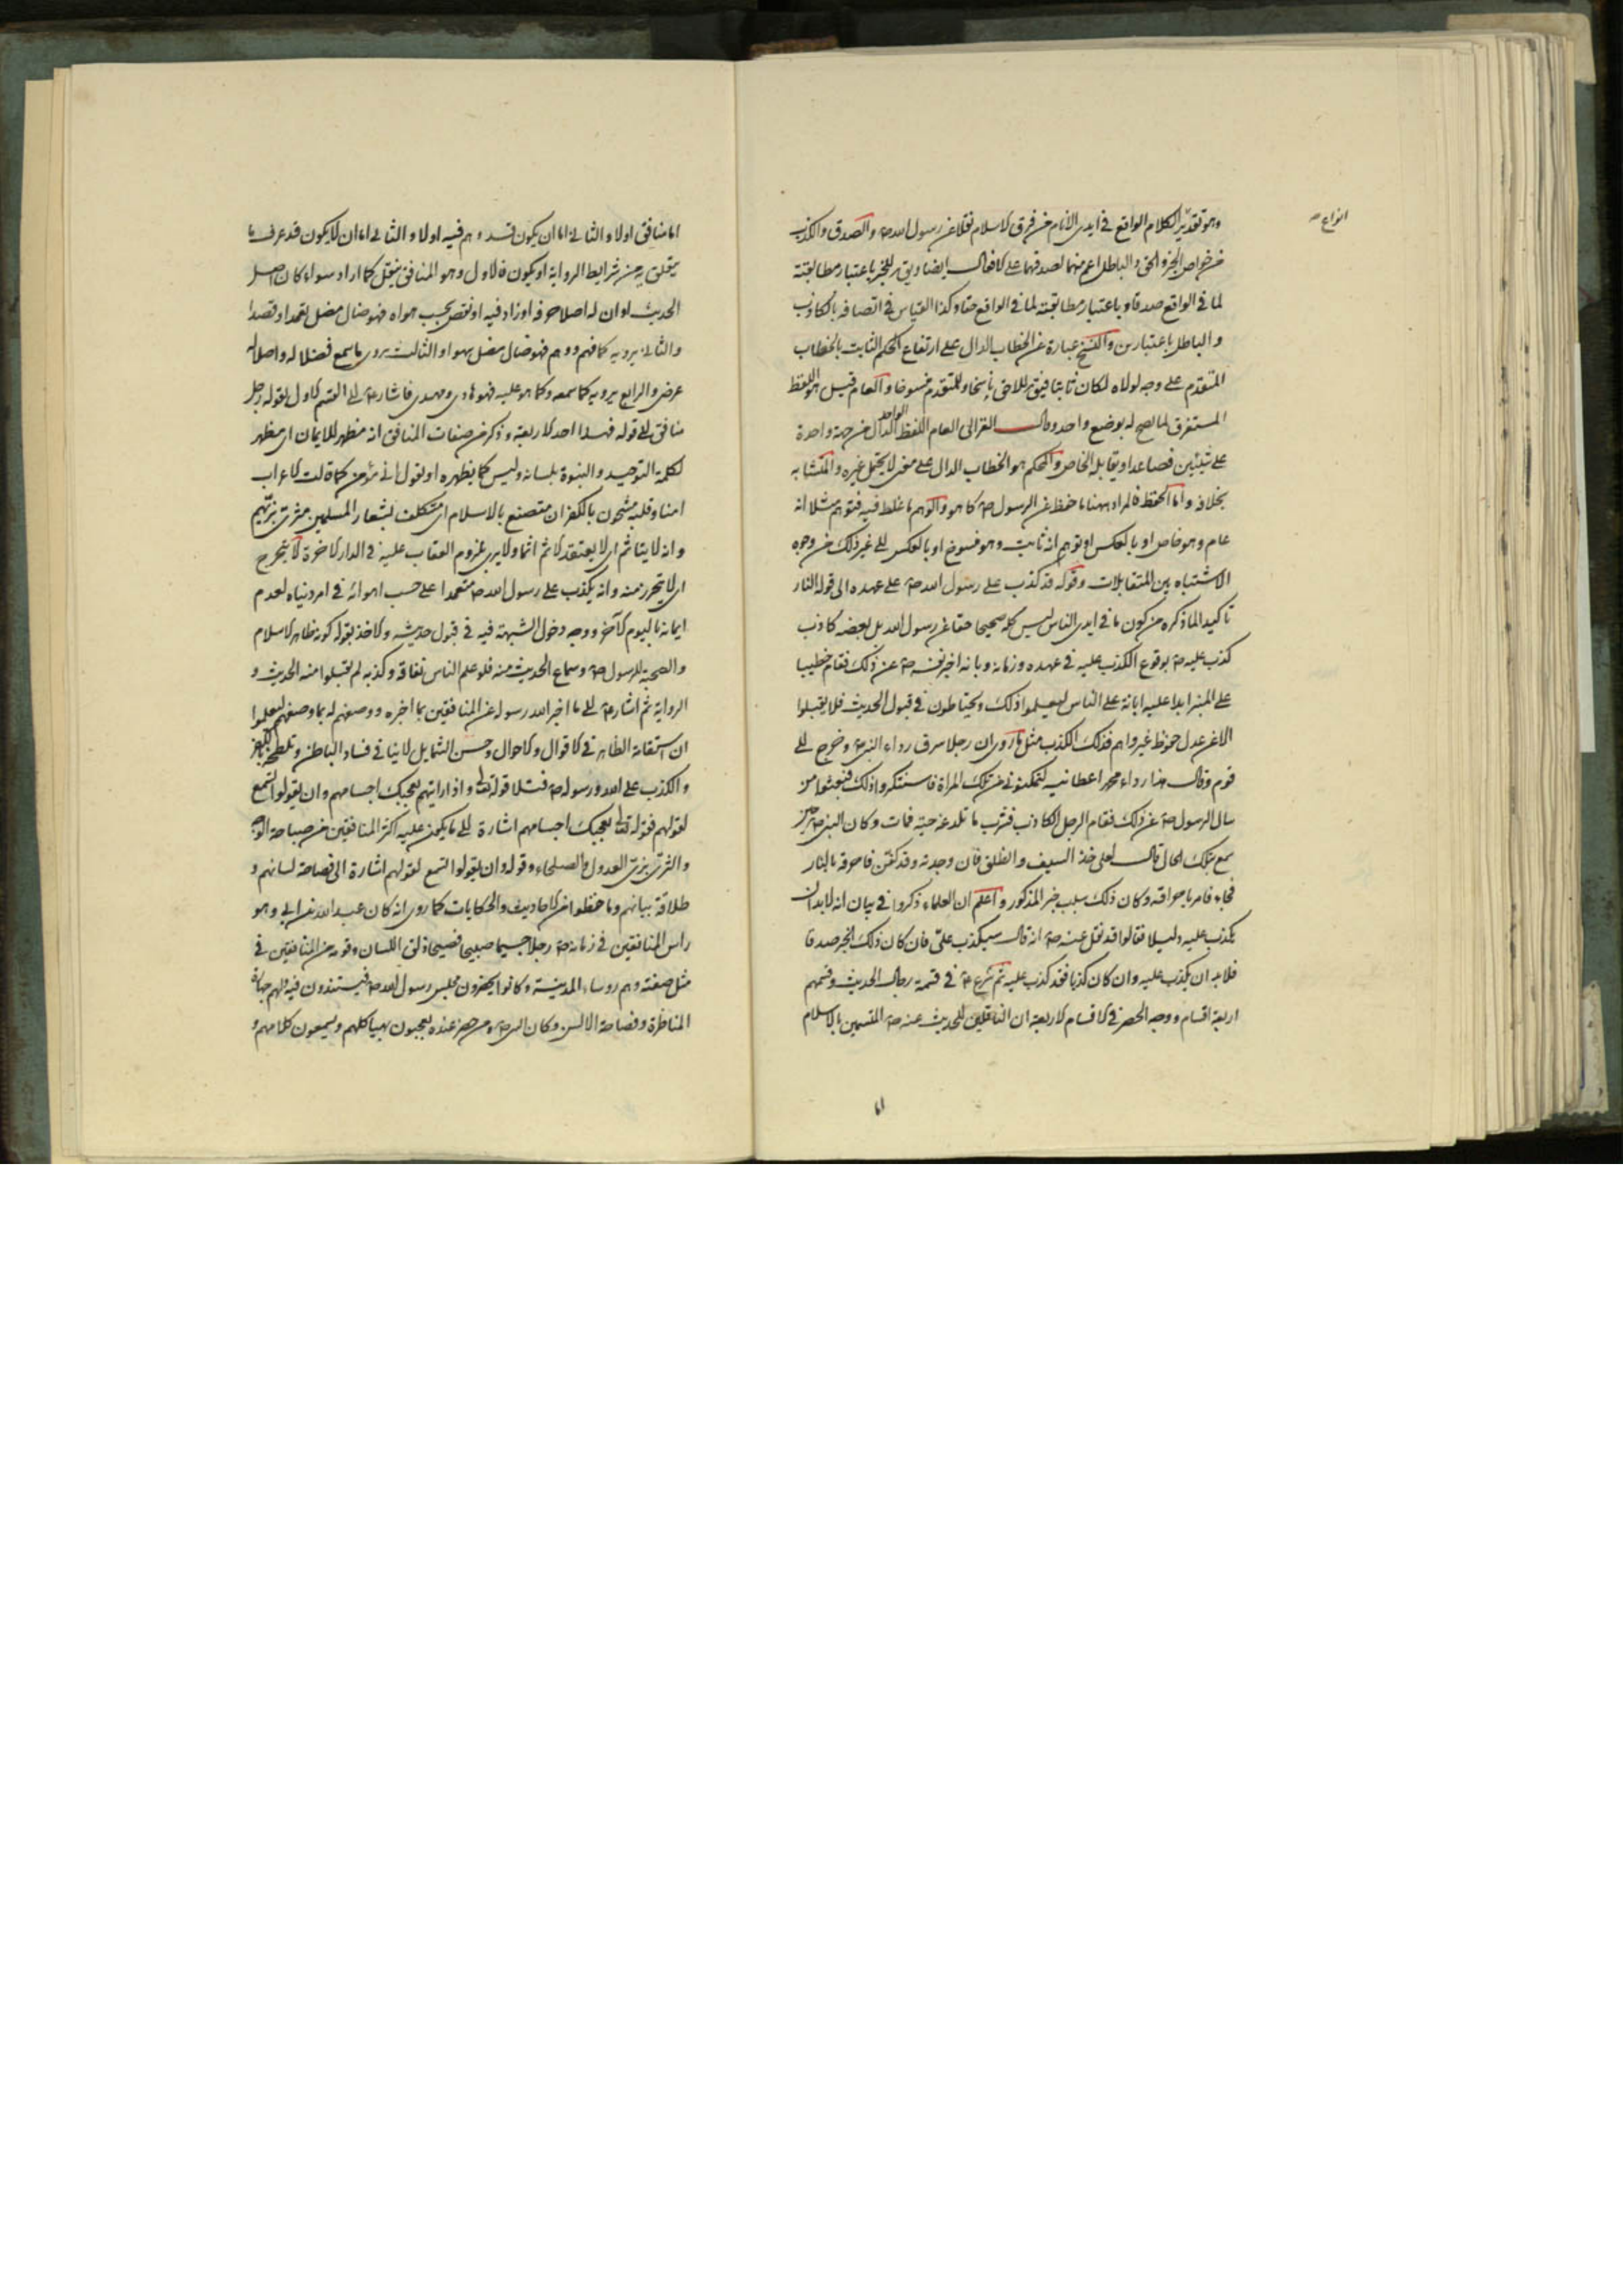 انواع
وهو تقدير الكلام الواقع فى ايدى الانام من فرق الاسلام نقلا عن رسول الله ص والصدق والكذب
من خواص الخبر والحق والباطل اعم منهما لصدقهما على الافعال ايضا ويق للخبر باعتبار مطابقته
لما فى الواقع صدقا وباعتبار مطابقته لما فى الواقع حقا وكذا القياس فى اتصافه بالكاذب
والباطل باعتبارين والنسخ عبارة عن الخطاب الدال على ارتفاع الحكم الثابت بالخطاب
المتقدم على وجه لولاه لكان ثابتا فيق للاخر ناسخا وللمتقدم منسوخا والعام قيل هو اللفظ
المستغرق لما يصلح له بوضع واحد وقال الغزالى العام اللفظ الواحد الدال من جهة واحدة
على شيئين فصاعدا ويقابله الخاص والمحكم هو الخطاب الدال على معنى لا يحتمل غيره والمتشابه
بخلافه واما الحفظ فالمراد ههنا ما حفظ عن الرسول ص كما هو والوهم ما غلط فيه فتوهم مثلا انه
عام وهو خاص او بالعكس او توهم انه ثابت وهو منسوخ او بالعكس الى غير ذلك من وجوه
الاشتباه بين المتقابلات وقوله قد كذب على رسول الله ص على عهده الى قوله النار
تاكيد لما ذكره من كون ما فى ايدى الناس ليس كله صحيحا حقا عن رسول الله بل بعضه كاذب
كذب عليه ص بوقوع الكذب عليه فى عهده وزمانه وبانه اخبر نفسه ص عن ذلك فقام خطيبا
على المنبر ابدا عليه ابانة على الناس ليعلموا ذلك ويحتاطون فى قبول الحديث فلا يقبلوا
الا عن عدل حفوظ غير واهم فذلك الكذب مثل ما روى ان رجلا سرق رداء النبى ص وخرج الى
قوم وقال هذا رداء محمد اعطانيه لتمكنونى من تلك المراة فاستنكروا ذلك فبعثوا من
سال الرسول ص عن ذلك فقام الرجل الكاذب فشرب ماء فلدغه حية فمات وكان النبى ص حين
سمع بتلك الحال قال لعلى خذ السيف وانطلق فان وجدته وقد كفيت فاحرقه بالنار
فجاء فامر باحراقه وكان ذلك سبب خبر المذكور واعلم ان العلماء ذكروا فى بيان انه لابد ان
يكذب عليه دليلا فقالوا قد نقل عنه ص انه قال سيكذب على فان كان ذلك الخبر صدقا
فلابد ان يكذب عليه وان كان كذبا فقد كذب عليه ثم شرع ع فى قسمة رجال الحديث وقسمهم
اربعة اقسام ووجه الحصر فى الاقسام الاربعة ان الناقلين للحديث عنه ص المتسمين بالاسلام
اما منافق اولا والثانى اما ان يكون قد وهم فيه اولا والثالث اما ان لا يكون قد عرف ما
يتعلق به من شرايط الرواية او يكون فالاول وهو المنافق ينقل كما اراد سواء كان اصل
الحديث او ان له اصلا حرفه او زاد فيه او نقص بحسب هواه فهو ضال مضل تعمدا وقصدا
والثانى يرويه كما فهم ووهم فهو ضال مضل سهوا والثالث يروى ما سمع فضلاله واضلاله
عرض والرابع يرويه كما سمعه وكما هو عليه فهو هاد ومهدى فاشار ع الى القسم الاول بقوله رجل
منافق الى قوله فهذا احد الاربعة وذكر من صفات المنافق انه مظهر للايمان اى مظهر
لكلمة التوحيد والنبوة بلسانه وليس كما يظهره او يقول انى مؤمن كما قالت الاعراب
امنا وقلبه مشحون بالكفر ان متصنع بالاسلام اى متكلف بشعار المسلمين متزى بزيهم
وانه لا يتاثم اى لا يعتقد الاثم اثما ولا يرى بلزوم العقاب عليه فى الدار الاخرة لا يتحرج
اى لا يتحرز منه وانه يكذب على رسول الله ص متعمدا على حسب اهوائه فى امر دنياه لعدم
ايمانه باليوم الاخر ووجه دخول الشبهة فيه فى قبول حديثه والاخذ بقوله كونه ظاهر الاسلام
والصحبة للرسول ص وسماع الحديث منه فلو علم الناس نفاقه وكذبه لم يقبلوا منه الحديث و
الرواية ثم اشار ع الى ما اخبر الله رسوله عن المنافقين بما اخبره ووصفهم له بما وصفهم ليعلموا
ان استقامة الظاهر فى الاقوال والاحوال وحسن الشمايل لاينافى فساد الباطن وتلطخه بالكفر
والكذب على الله ورسوله ص فتلا قوله تعالى واذا رايتهم تعجبك اجسامهم وان يقولوا تسمع
لقولهم فقوله تعالى تعجبك اجسامهم اشارة الى ما يكون عليه اكثر المنافقين من صباحة الوجه
والتزى بزى العدول والصلحاء وقوله وان يقولوا تسمع لقولهم اشارة الى فصاحة لسانهم و
طلاقة بيانهم وما حفظوا من الاحاديث والحكايات كما روى انه كان عبد الله بن ابى وهو
راس المنافقين فى زمانه ص رجلا جسيما صبيحا فصيحا ذلق اللسان وقوم من المنافقين فى
مثل صفته وهم روساء المدينة وكانوا يحضرون مجلس رسول الله ص فيستندون فيه ولهم جهارة
المناظرة وفصاحة الالسن وكان النبى ص ومن حضر عنده يعجبون بهياكلهم ويسمعون كلامهم و